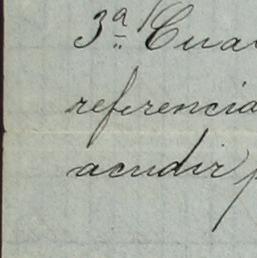 3ª Cua
referencia
acudir